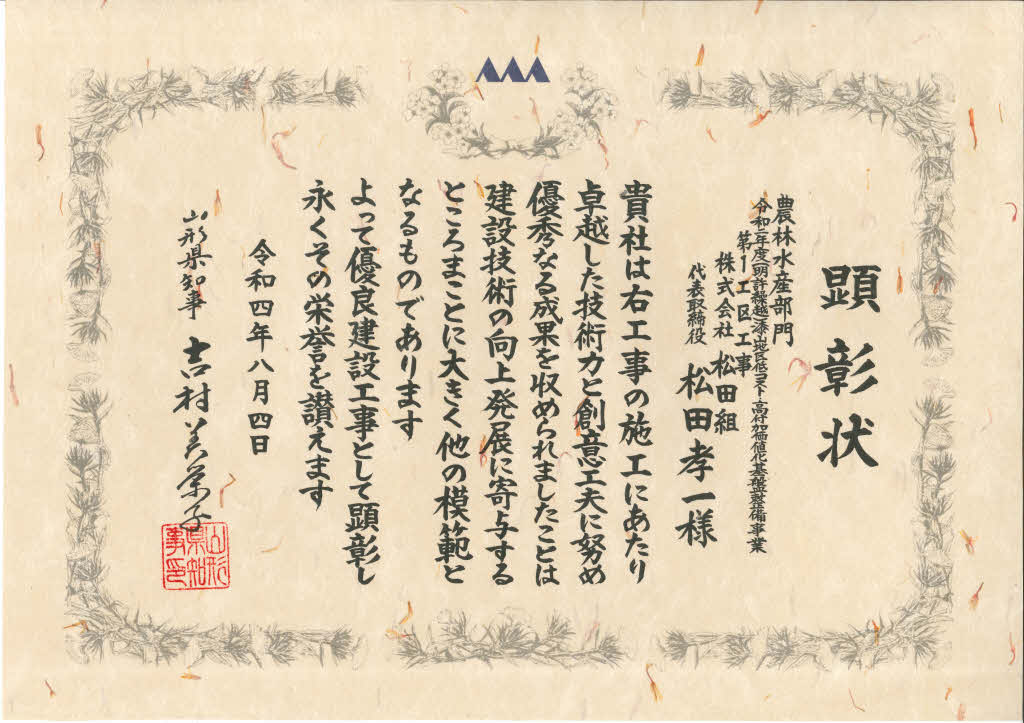 顕彰状
農林水産部門
令和二年度(明許繰越)漆山地区低コスト・高付加価値化基盤整備事業
第1工区工事
株式会社 松田組
代表取締役 松田孝一様
貴社は右工事の施工にあたり
卓越した技術力と創意工夫に努め
優秀なる成果を収められましたことは
建設技術の向上発展に寄与する
ところまことに大きく他の模範と
なるものであります
よって優良建設工事として顕彰し
永くその栄誉を讃えます
令和四年八月四日
山形県知事 吉村美栄子
山形県知事印